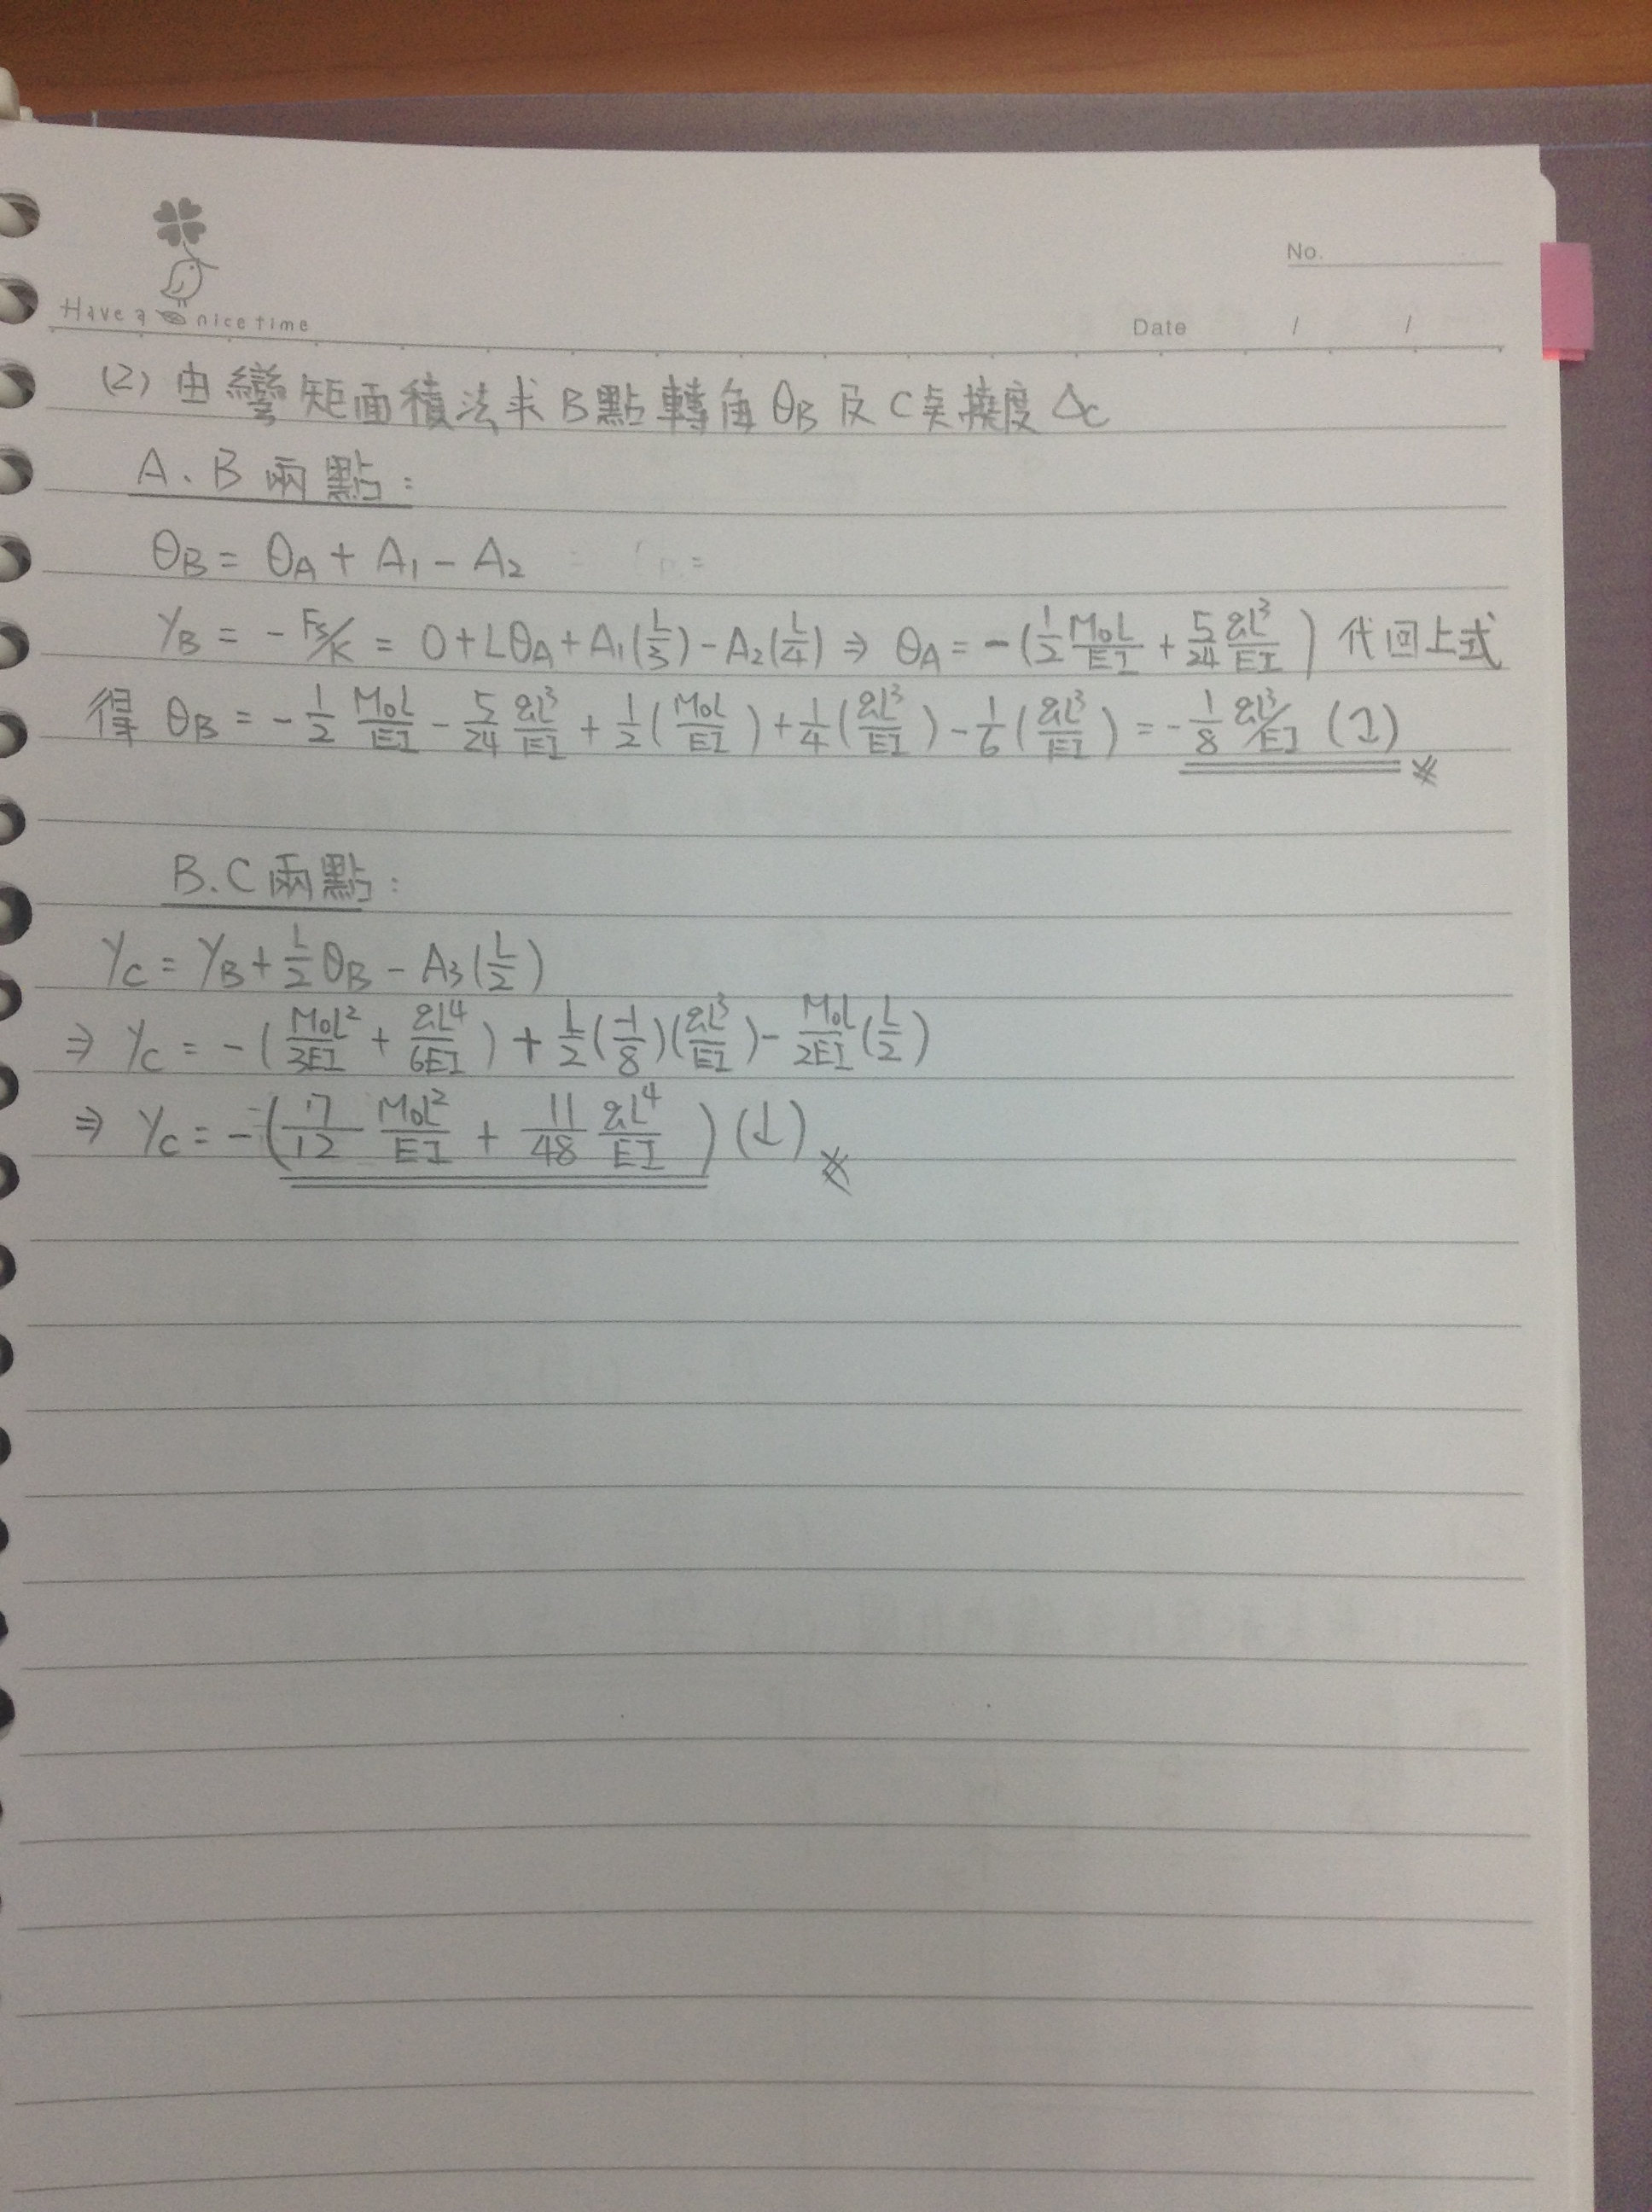 No.
Have a nice time
Date / /
(2) 由彎矩面積法求B點轉角θB及C点撓度ΔC
A、B兩點:
θB = θA + A₁ - A₂
YB = - Fs/K = 0 + LθA + A₁(L/3) - A₂(L/4) ⇒ θA = -(1/2 M₀L/EI + 5/24 qL³/EI) 代回上式
得 θB = - 1/2 M₀L/EI - 5/24 qL³/EI + 1/2 (M₀L/EI) + 1/4 (qL³/EI) - 1/6 (qL³/EI) = - 1/8 qL³/EI (↴)
B.C兩點:
YC = YB + L/2 θB - A₃(L/2)
⇒ YC = -(M₀L²/3EI + qL⁴/6EI) + L/2 (-1/8)(qL³/EI) - M₀L/2EI (L/2)
⇒ YC = -(7/12 M₀L²/EI + 11/48 qL⁴/EI) (↓)